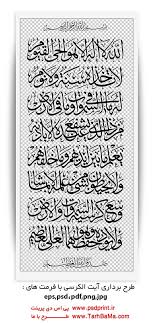 الله لا اله الا هو الحي القيوم
لا تأخذه سنة ولا نوم
له ما في السموات وما في الارض
من ذا الذي يشفع عنده الا باذنه
يعلم ما بين ايديهم وما خلفهم
ولا يحيطون بشيء من علمه الا بما شاء
وسع كرسيه السموات والارض
ولا يؤده حفظهما وهو العلي العظيم
طرح برداری آیت الکرسی با فرمت های :
eps,psd,pdf,png,jpg
پی اس دی پرینت www.psdprint.ir
طرح با ما www.TarhBaMa.com